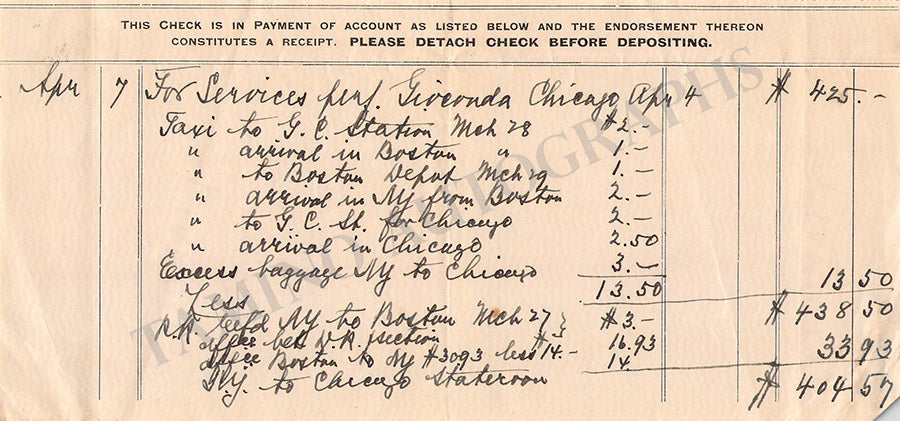 THIS CHECK IS IN PAYMENT OF ACCOUNT AS LISTED BELOW AND THE ENDORSEMENT THEREON
CONSTITUTES A RECEIPT. PLEASE DETACH CHECK BEFORE DEPOSITING.
Apr 7 For Services perf. Gioconda Chicago Apr 4 $ 425.-
Taxi to G. C. Station Mch 28 $2.-
" arrival in Boston " 1.-
" to Boston Depot Mch 29 1.-
" arrival in NY from Boston 2.-
" to G. C. St. for Chicago 2.-
" arrival in Chicago 2.50
Excess baggage NY to Chicago 3.-
13.50 13 50
Less $ 438 50
R.R. NY to Boston Mch 27 $3.-
section 16.93
Boston to NY $30.93 less $14.- 14 33 93
N.Y. to Chicago Stateroom $ 404 57
TAMINO AUTOGRAPHS